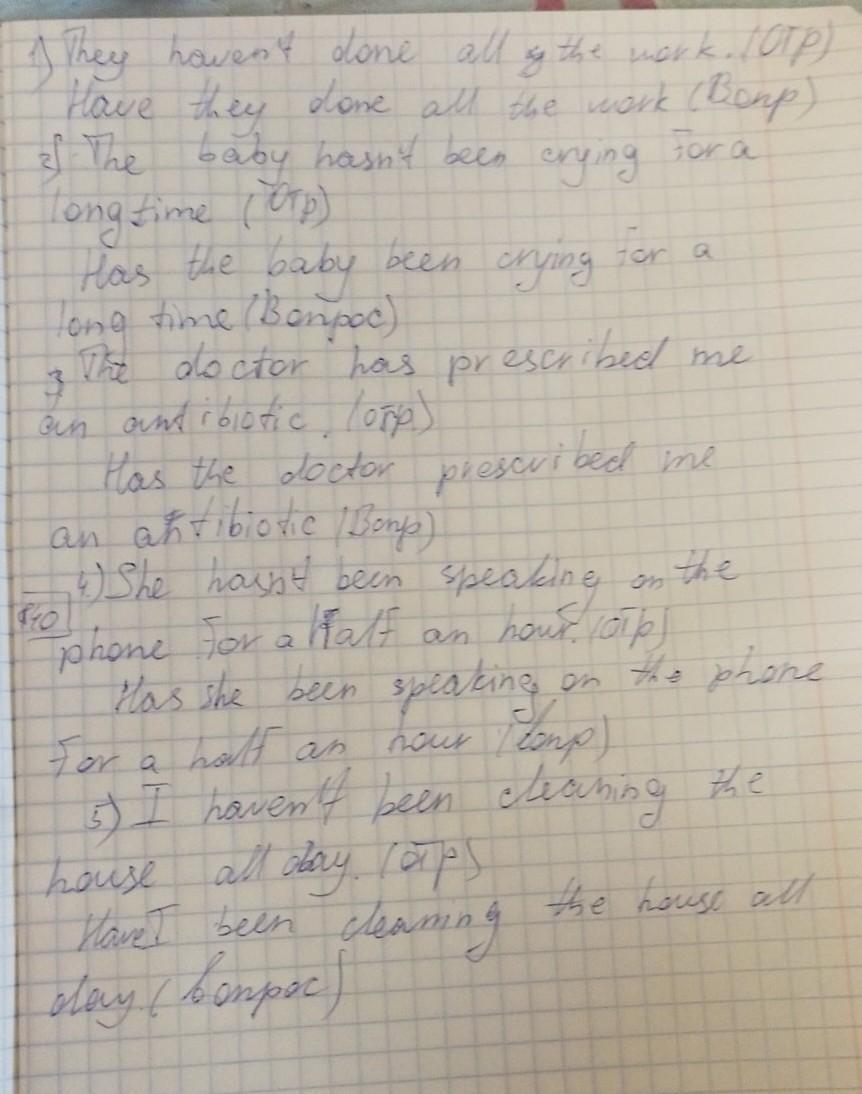 1) They haven't done all the work. (ОТР)
Have they done all the work (Вопр)
2) The baby hasn't been crying for a
long time (ОТр)
Has the baby been crying for a
long time (Вопрос)
3 The doctor has prescribed me
an antibiotic. (отр)
Has the doctor prescribed me
an antibiotic (Вопр)
4) She hasn't been speaking on the
phone for a half an hour. (отр)
Has she been speaking on the phone
for a half an hour (Вопр)
5) I haven't been cleaning the
house all day. (отр)
Have I been cleaning the house all
day. (вопрос)